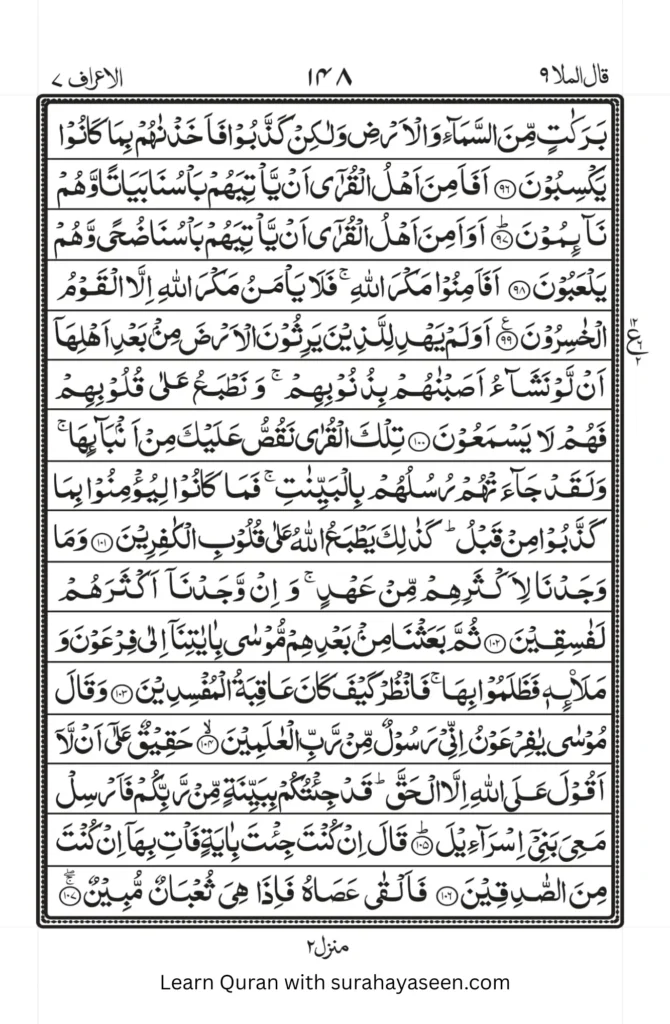 قال الملا ٩ ١٤٨ الاعراف ٧
بَرَكٰتٍ مِّنَ السَّمَآءِ وَالۡاَرۡضِ وَلٰكِنۡ كَذَّبُوۡا فَاَخَذۡنٰهُمۡ بِمَا كَانُوۡا
يَكۡسِبُوۡنَ ﴿۹۶﴾ اَفَاَمِنَ اَهۡلُ الۡقُرٰٓى اَنۡ يَّاۡتِيَهُمۡ بَاۡسُنَا بَيَاتًا وَّهُمۡ
نَآئِمُوۡنَ ؕ﴿۹۷﴾ اَوَاَمِنَ اَهۡلُ الۡقُرٰٓى اَنۡ يَّاۡتِيَهُمۡ بَاۡسُنَا ضُحًى وَّهُمۡ
يَلۡعَبُوۡنَ ﴿۹۸﴾ اَفَاَمِنُوۡا مَكۡرَ اللّٰهِ ۚ فَلَا يَاۡمَنُ مَكۡرَ اللّٰهِ اِلَّا الۡقَوۡمُ
الۡخٰسِرُوۡنَ ﴿۹۹﴾ اَوَلَمۡ يَهۡدِ لِلَّذِيۡنَ يَرِثُوۡنَ الۡاَرۡضَ مِنۡۢ بَعۡدِ اَهۡلِهَاۤ
١٢ ع ٢
اَنۡ لَّوۡ نَشَآءُ اَصَبۡنٰهُمۡ بِذُنُوۡبِهِمۡ ۚ وَنَطۡبَعُ عَلٰى قُلُوۡبِهِمۡ
فَهُمۡ لَا يَسۡمَعُوۡنَ ﴿۱۰۰﴾ تِلۡكَ الۡقُرٰى نَقُصُّ عَلَيۡكَ مِنۡ اَنۡۢبَآئِهَا ۚ
وَلَقَدۡ جَآءَتۡهُمۡ رُسُلُهُمۡ بِالۡبَيِّنٰتِ ۚ فَمَا كَانُوۡا لِيُؤۡمِنُوۡا بِمَا
كَذَّبُوۡا مِنۡ قَبۡلُ ؕ كَذٰلِكَ يَطۡبَعُ اللّٰهُ عَلٰى قُلُوۡبِ الۡكٰفِرِيۡنَ ﴿۱۰۱﴾ وَمَا
وَجَدۡنَا لِاَكۡثَرِهِمۡ مِّنۡ عَهۡدٍ ۚ وَاِنۡ وَّجَدۡنَاۤ اَكۡثَرَهُمۡ
لَفٰسِقِيۡنَ ﴿۱۰۲﴾ ثُمَّ بَعَثۡنَا مِنۡۢ بَعۡدِهِمۡ مُّوۡسٰى بِاٰيٰتِنَاۤ اِلٰى فِرۡعَوۡنَ وَ
مَلَا۟ئِهٖ فَظَلَمُوۡا بِهَا ۚ فَانْظُرۡ كَيۡفَ كَانَ عَاقِبَةُ الۡمُفۡسِدِيۡنَ ﴿۱۰۳﴾ وَقَالَ
مُوۡسٰى يٰفِرۡعَوۡنُ اِنِّىۡ رَسُوۡلٌ مِّنۡ رَّبِّ الۡعٰلَمِيۡنَ ۙ﴿۱۰۴﴾ حَقِيۡقٌ عَلٰٓى اَنۡ لَّاۤ
اَقُوۡلَ عَلَى اللّٰهِ اِلَّا الۡحَقَّ ؕ قَدۡ جِئۡتُكُمۡ بِبَيِّنَةٍ مِّنۡ رَّبِّكُمۡ فَاَرۡسِلۡ
مَعِىَ بَنِىۡۤ اِسۡرَآءِيۡلَ ؕ﴿۱۰۵﴾ قَالَ اِنۡ كُنۡتَ جِئۡتَ بِاٰيَةٍ فَاۡتِ بِهَاۤ اِنۡ كُنۡتَ
مِنَ الصّٰدِقِيۡنَ ﴿۱۰۶﴾ فَاَلۡقٰى عَصَاهُ فَاِذَا هِىَ ثُعۡبَانٌ مُّبِيۡنٌ ۖۚ﴿۱۰۷﴾
منزل ٢
Learn Quran with surahayaseen.com